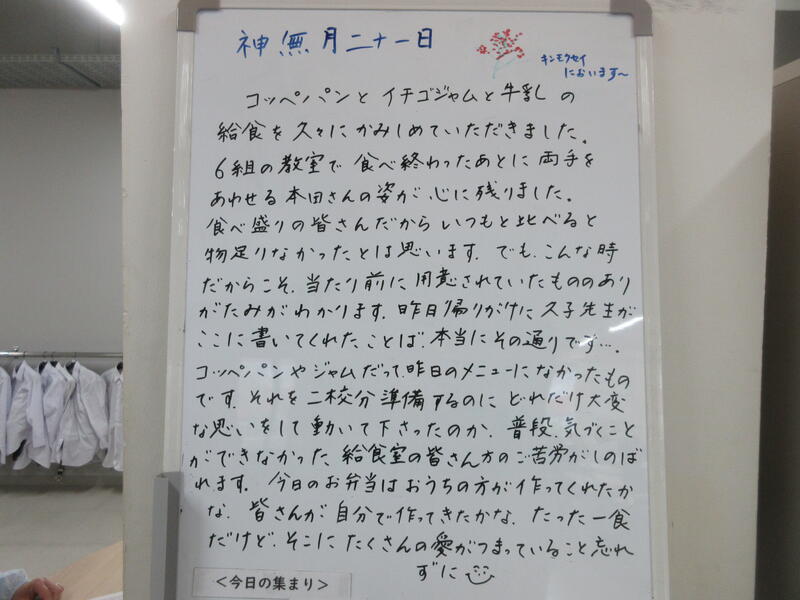 神無月二十一日
キンモクセイ
においます〜
コッペパンとイチゴジャムと牛乳の
給食を久々にかみしめていただきました。
6組の教室で食べ終わったあとに両手を
あわせる本田さんの姿が心に残りました。
食べ盛りの皆さんだからいつもと比べると
物足りなかったとは思います。でも、こんな時
だからこそ、当たり前に用意されていたもののあり
がたみがわかります。昨日帰りがけに久子先生が
ここに書いてくれたことば、本当にその通りです…。
コッペパンやジャムだって、昨日のメニューになかったもの
です。それを二校分準備するのにどれだけ大変
な思いをして動いて下さったのか、普段、気づくこと
ができなかった、給食室の皆さん方のご苦労がしのば
れます。今日のお弁当はおうちの方が作ってくれたか
な、皆さんが自分で作ってきたかな、たった一食
だけど、そこにたくさんの愛がつまっていること忘れ
ずに
＜今日の集まり＞